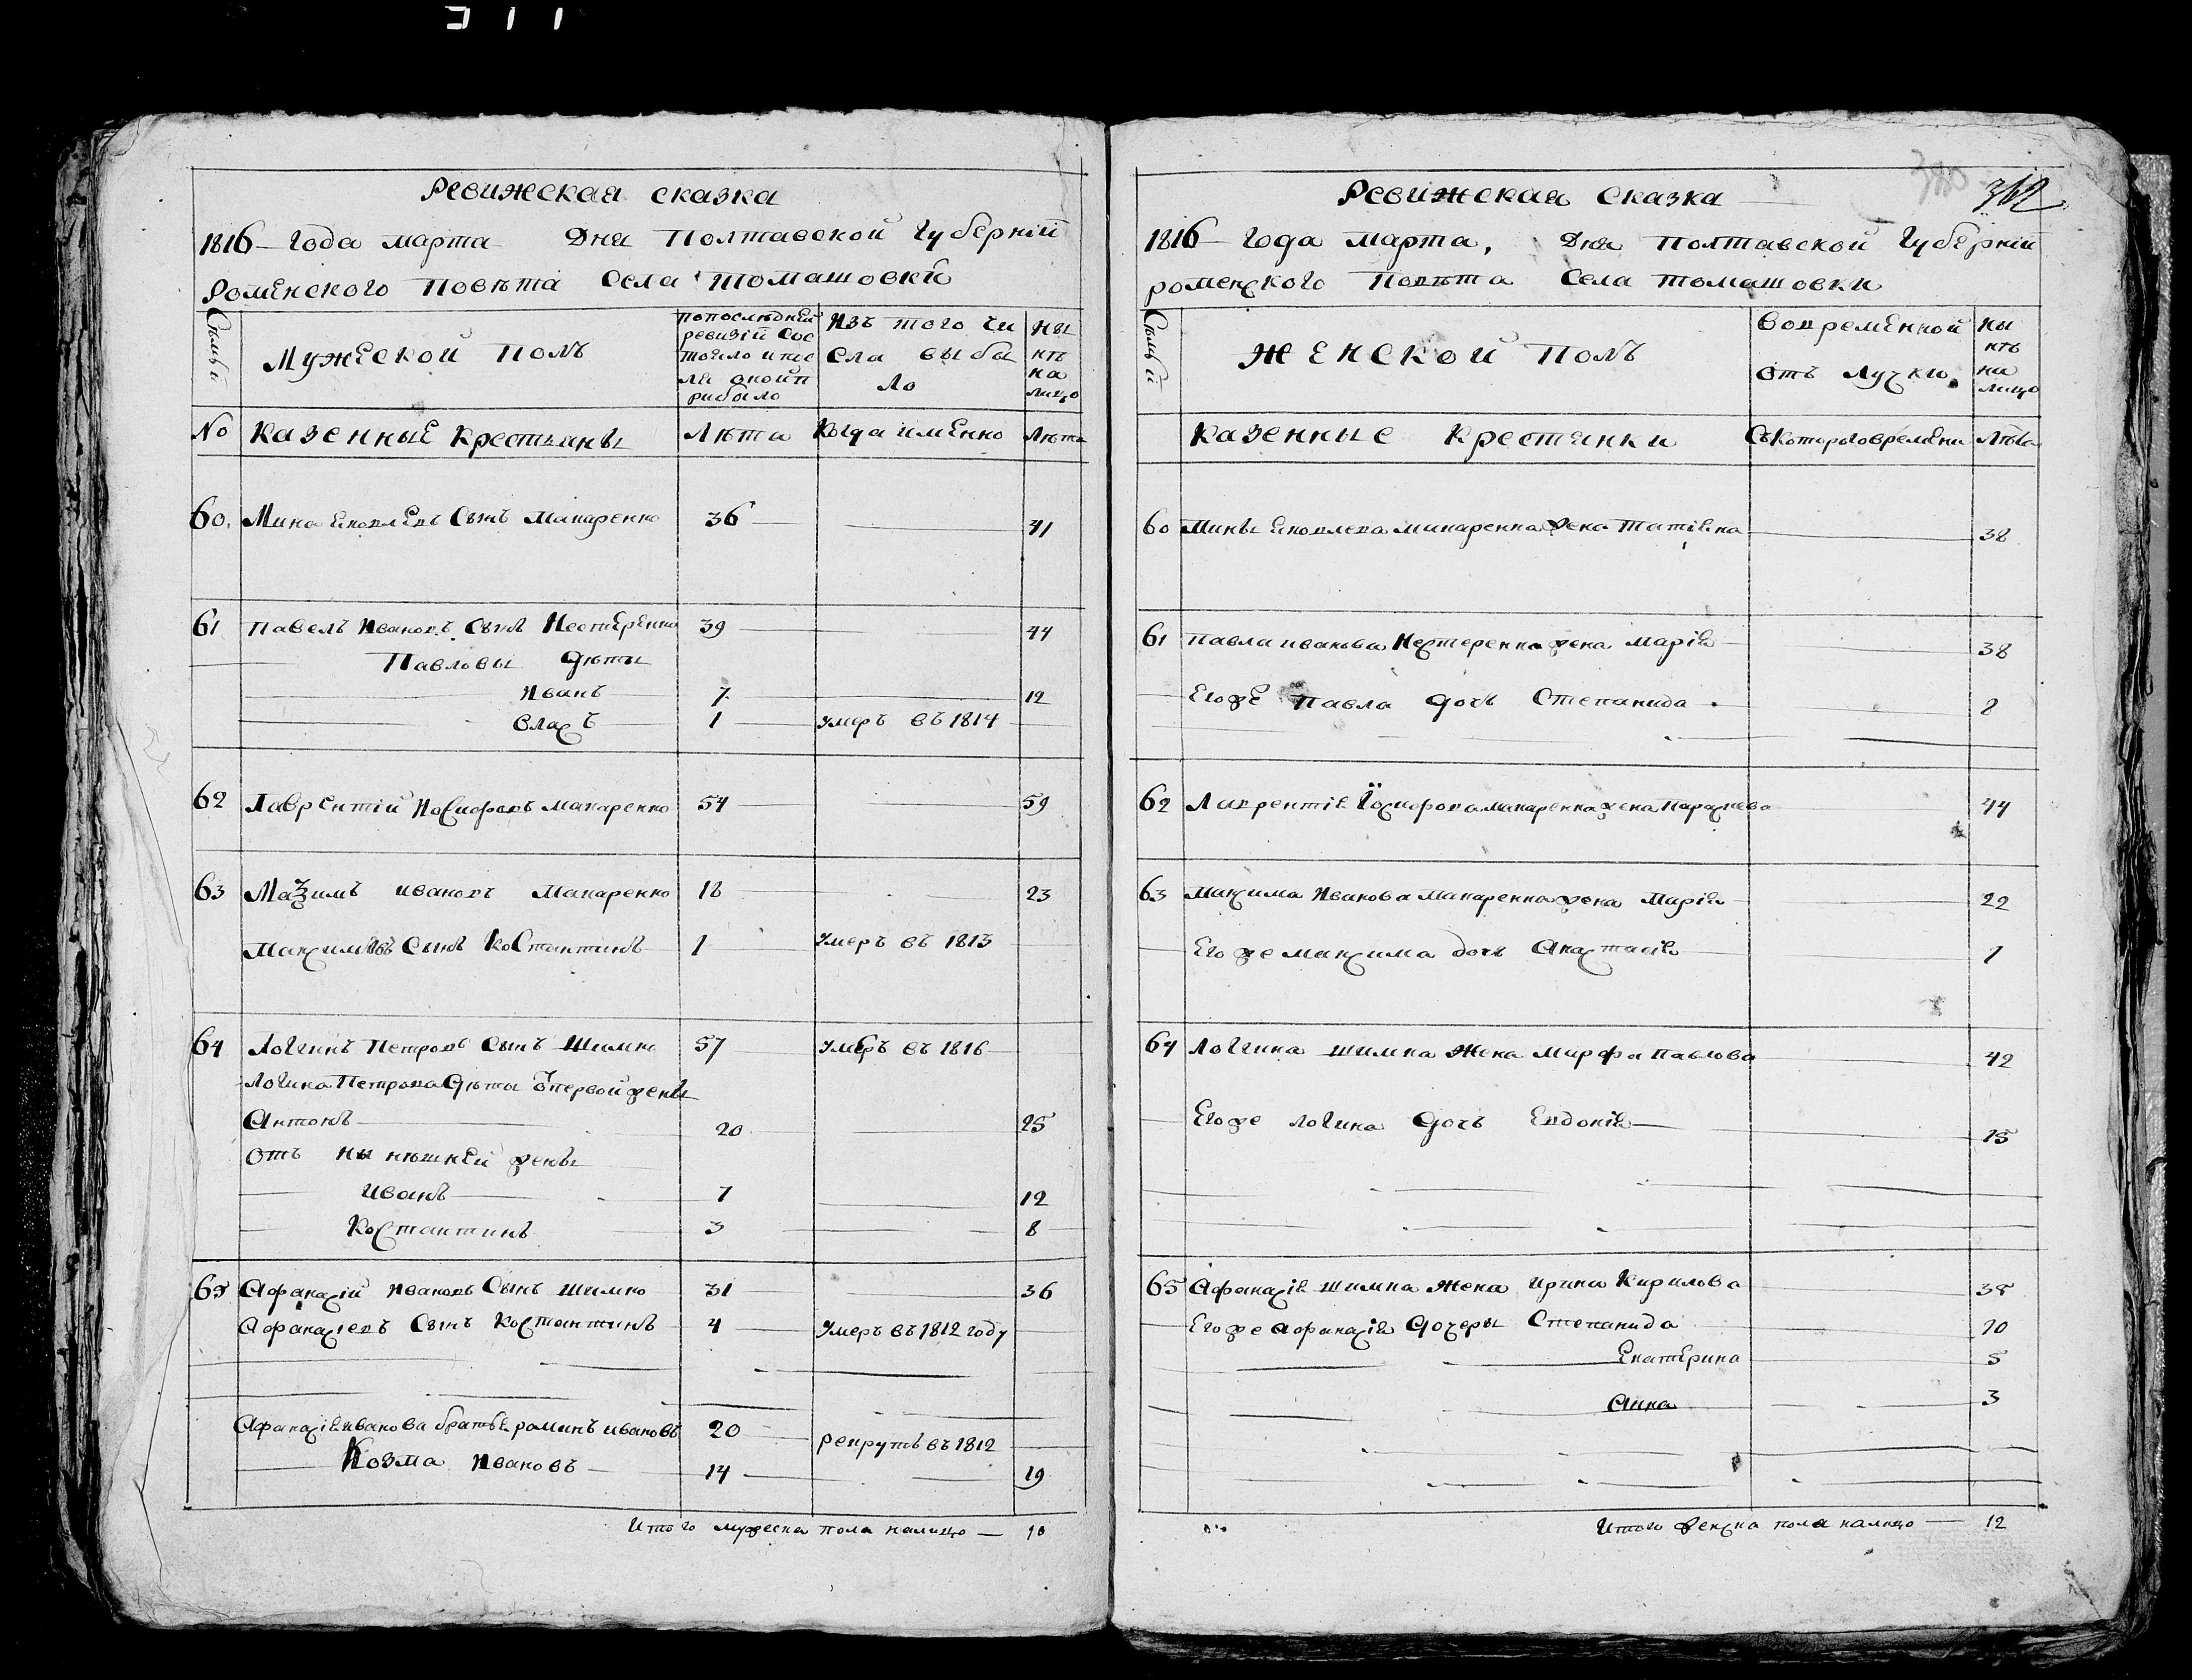 311
Ревижская сказка
1816 — года марта — Дня Полтавской Губерній
Роменского Повѣта Села Томашовки
Семьи
Мужеской Полъ
попослѣдней ревизій сос тояло и пос ли оной п рибыло
Изъ того чи сла выбы ло
Ны нѣ на лицо
№ Казенные Крестьяны Лѣта Когда именно Лѣта
60. Мина Яковлевъ Сынъ Макаренко 36 41
61 Павелъ Ивановъ Сынъ Нестеренко 39 44
Павловы дѣты
Иванъ 7 12
Власъ 1 умеръ въ 1814
62 Лаврентій Иосифовъ Макаренко 54 59
63 Максимъ ивановъ Макаренко 18 23
Максимовъ Сынъ Костантинъ 1 умеръ въ 1813
64 Логгинъ Петровъ Сынъ Шимко 57 умеръ въ 1816
Логина Петрова дѣты отпервой жены
Антонъ 20 25
отъ нынѣшней жены
Иванъ 7 12
Костантинъ 3 8
65 Афанасій Ивановъ Сынъ Шимко 31 36
Афанасіевъ Сынъ Костантинъ 4 умеръ въ 1812 году
Афанасія иванова братья романъ ивановъ 20 рекрутъ въ 1812
Козма Ивановъ 14 19
Итого мужеска пола налицо — 10
362
Ревижская Сказка
1816 — года марта, Дня Полтавской Губерній
роменского Повѣта Села томашовки
Семьи
Женской Полъ
Вовременной отъ лучкѣ.
ны нѣ на лицо
Казенные Крестянки Съкоторого времени Лѣта
60 Мины Яковлева макаренка жена Татіяна 38
61 павла иванова Нестеренка жена Марія 38
Егоже Павла дочь Степанида 8
62 Лаврентія Іосифова макаренка жена Параскева 44
63 Максима Иванова Макаренка жена Марія 22
Егоже максима дочь Анастасія 1
64 Логгина шимка жена Марфа Павлова 42
Егоже логина дочь Евдокія 15
65 Афанасія шимка жена Ирина Кирилова 35
Егоже афанасія дочеры Степанида 10
Екатерина 5
Анна 3
Итого женска пола налицо — 12